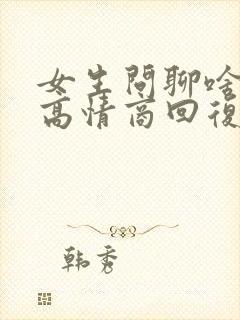 女生問聊啥
高情商回復
韩秀